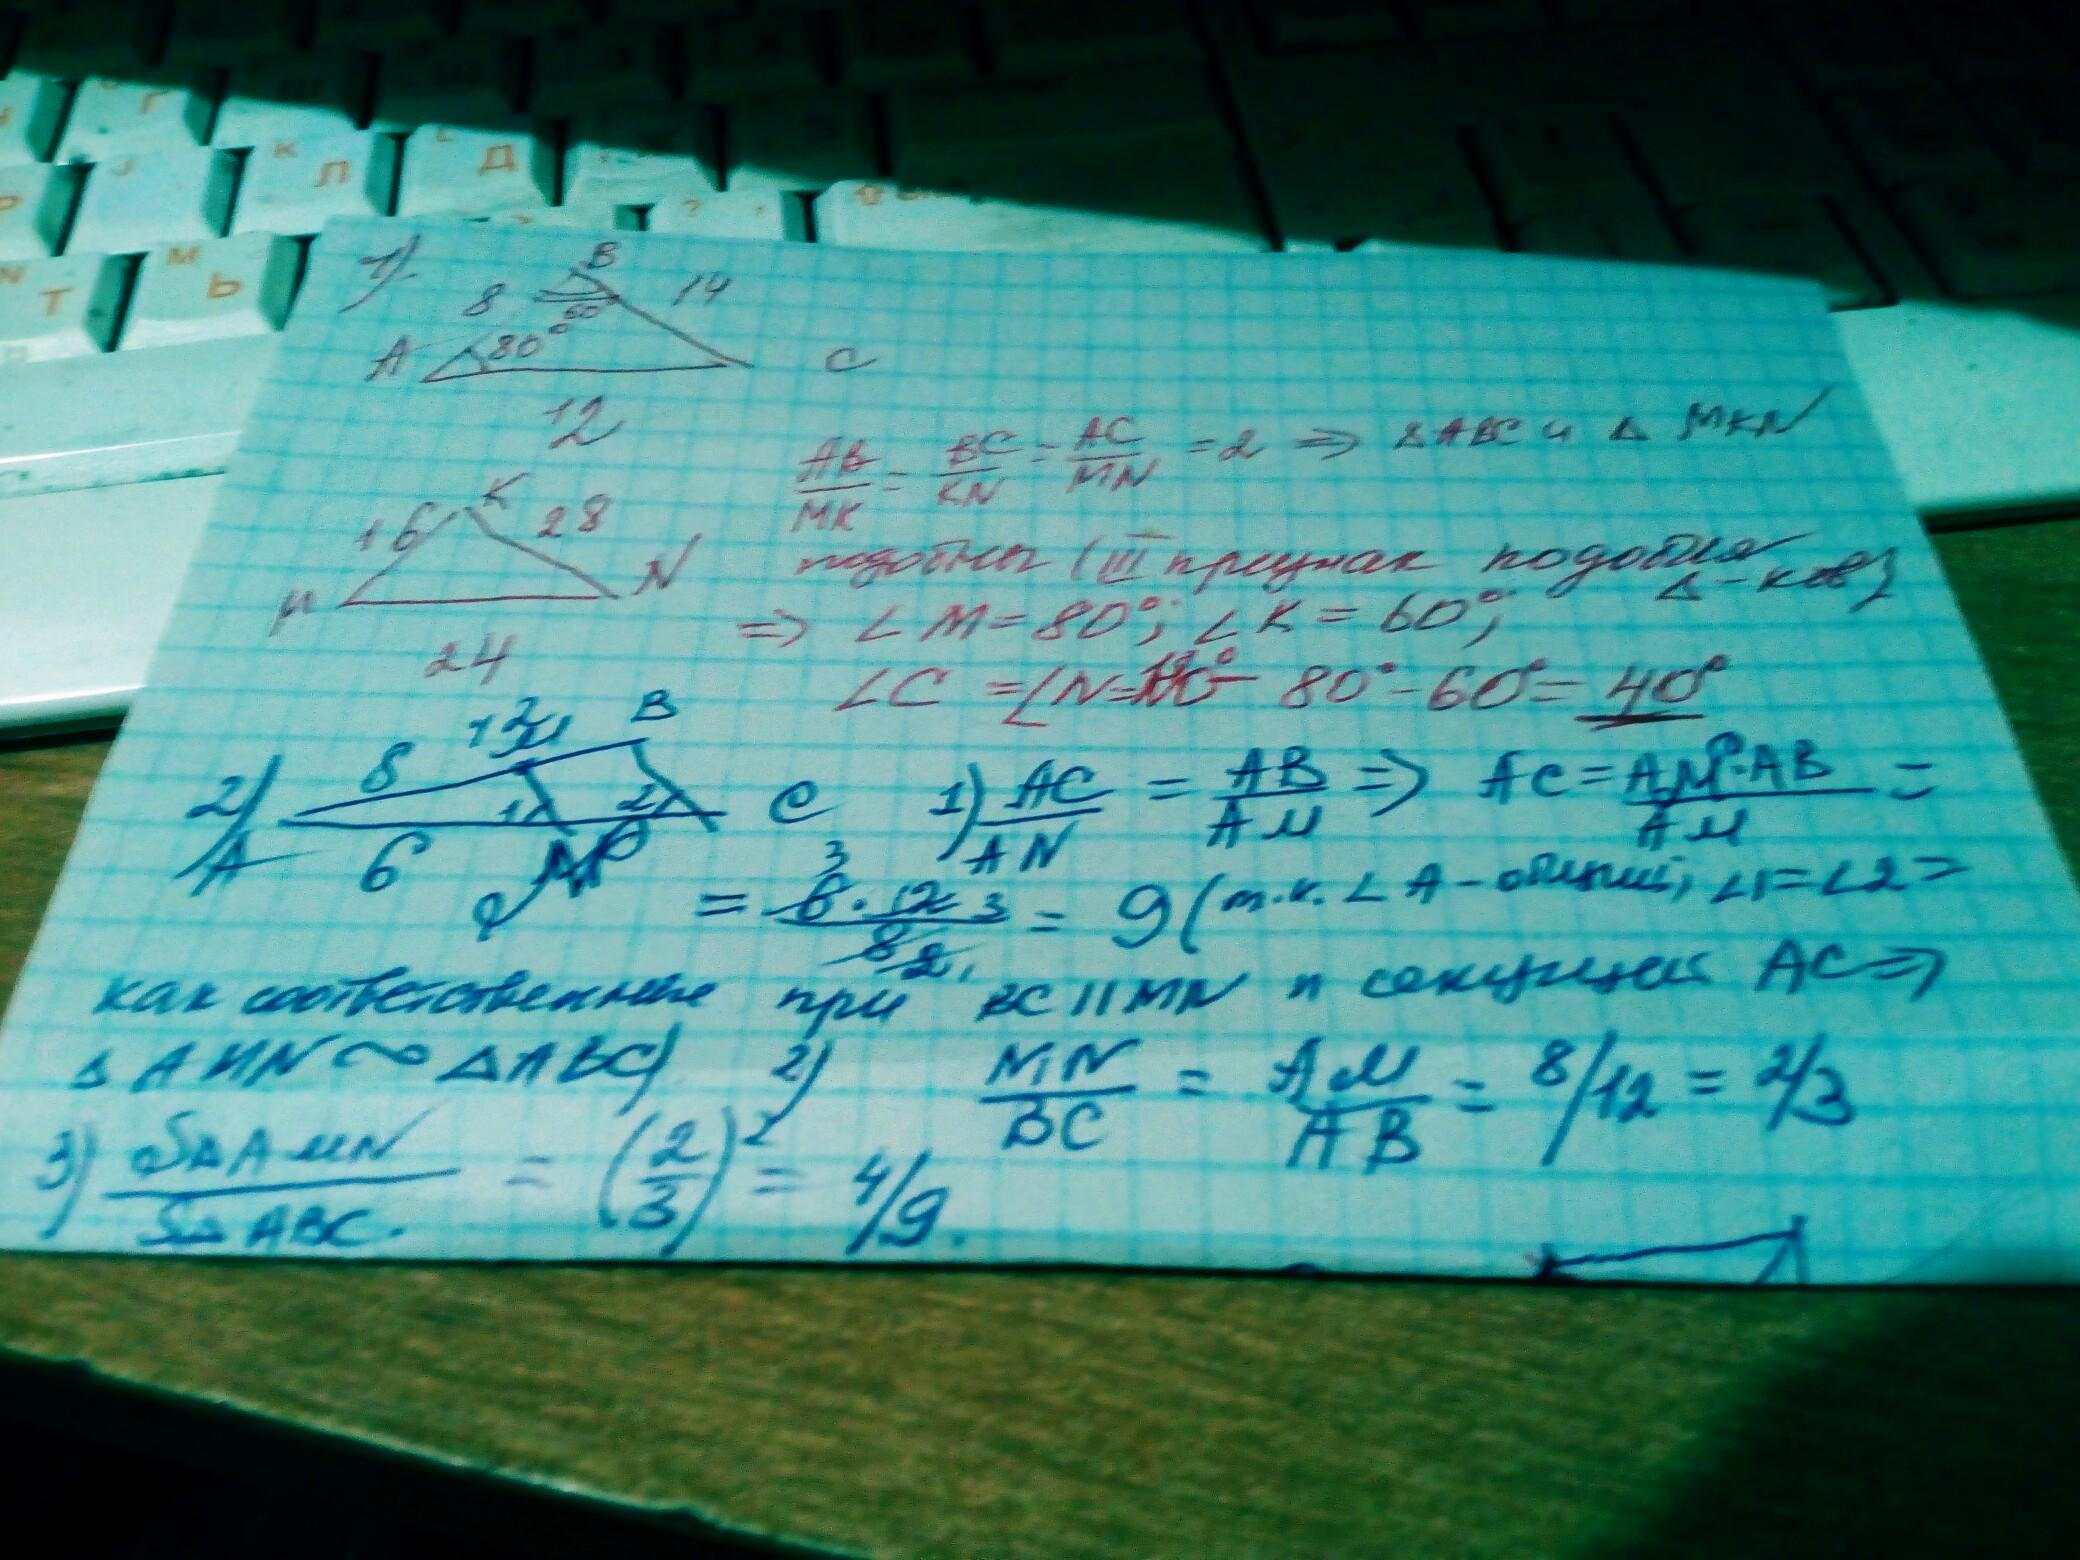 1)
B
8
14
60°
A
80°
C
12
AB/MK = BC/KN = AC/MN = 2 => ΔABC и Δ MKN
K
16
28
M
N
24
подобны (III признак подобия
Δ-ков)
=> ∠M = 80°; ∠K = 60°;
∠C = ∠N = 180° - 80° - 60° = 40°
2)
8
12
B
A
6
1
2
C
1) AC/AN = AB/AM => AC = AN·AB/AM =
= 6·12/8 = 9 (т.к. ∠A - общий, ∠1 = ∠2 =
как соответственные при BC||MN и секущей AC =>
Δ AMN ~ ΔABC) 2) MN/BC = AM/AB = 8/12 = 2/3
3) SΔAMN/SΔABC. = (2/3)² = 4/9.
К Л Д
М
Т Ь